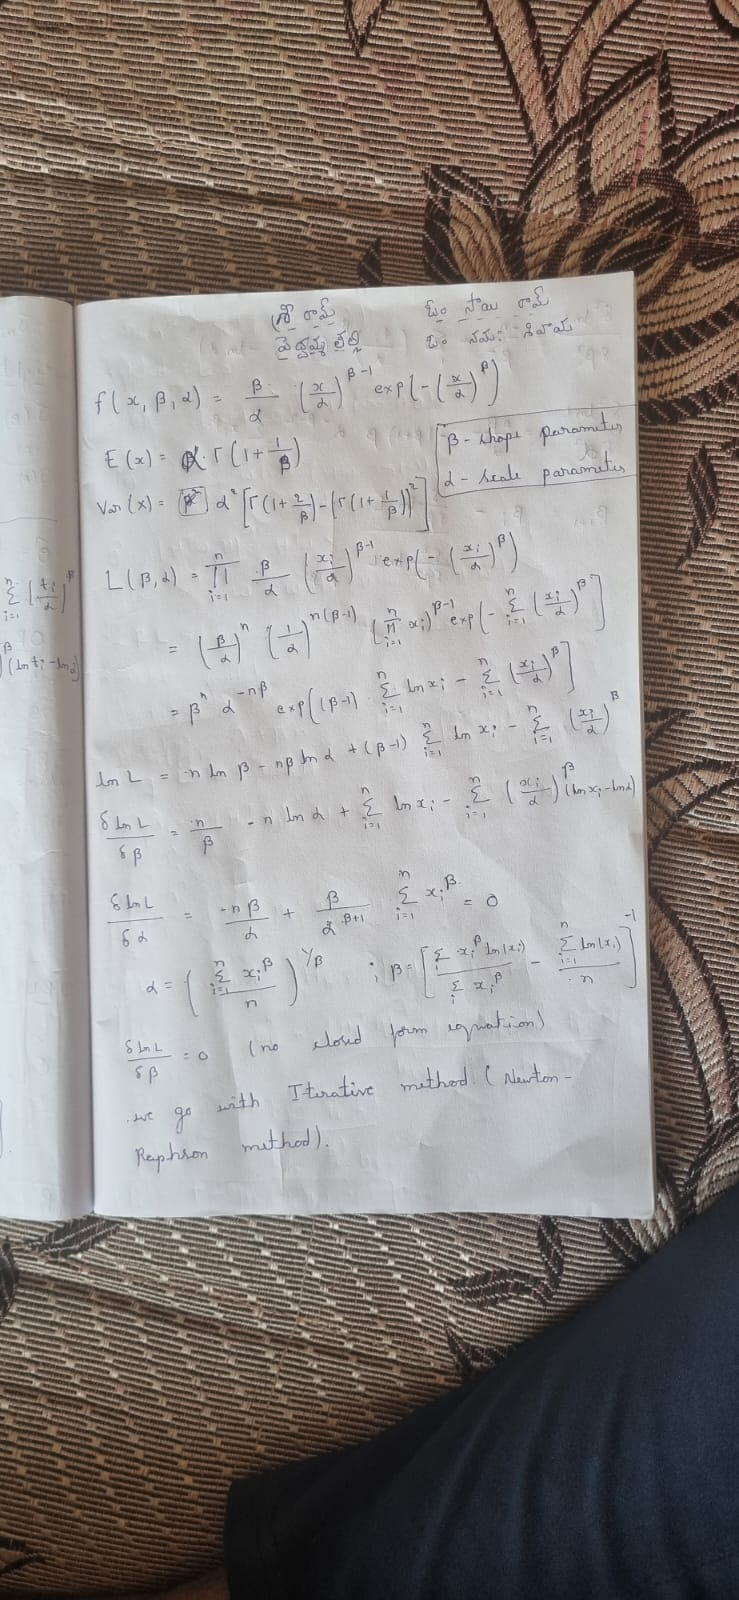 శ్రీ రామ్ ఓం సాయి రామ్
పెద్దమ్మ తల్లి ఓం నమః శివాయ
f(x, β, α) = β/α (x/α)^(β-1) exp(-(x/α)^β)
β - shape parameter
α - scale parameter
E(x) = α·Γ(1+1/β)
Var(x) = α²[Γ(1+2/β)-(Γ(1+1/β))²]
L(β,α) = ∏_{i=1}^{n} β/α (x_i/α)^(β-1) exp(-(x_i/α)^β)
= (β/α)^n (1/α)^(n(β-1)) (∏_{i=1}^{n} x_i)^(β-1) exp(-∑_{i=1}^{n} (x_i/α)^β]
= β^n α^(-nβ) exp((β-1) ∑_{i=1}^{n} ln x_i - ∑_{i=1}^{n} (x_i/α)^β]
ln L = n ln β - nβ ln α + (β-1) ∑_{i=1}^{n} ln x_i - ∑_{i=1}^{n} (x_i/α)^β
δ ln L/δβ = n/β - n ln α + ∑_{i=1}^{n} ln x_i - ∑_{i=1}^{n} (x_i/α)^β (ln x_i - ln α)
δ ln L/δα = -nβ/α + β/α^(β+1) ∑_{i=1}^{n} x_i^β = 0
α = (∑_{i=1}^{n} x_i^β / n)^(1/β) ; β = [∑_i x_i^β ln(x_i) / ∑_i x_i^β - ∑_{i=1}^{n} ln(x_i) / n]^(-1)
δ ln L/δβ = 0 (no closed form equation)
we go with Iterative method (Newton-
Raphson method).
∑_{i=1}^{n} (t_i/α)^β
β (ln t_i - ln α)